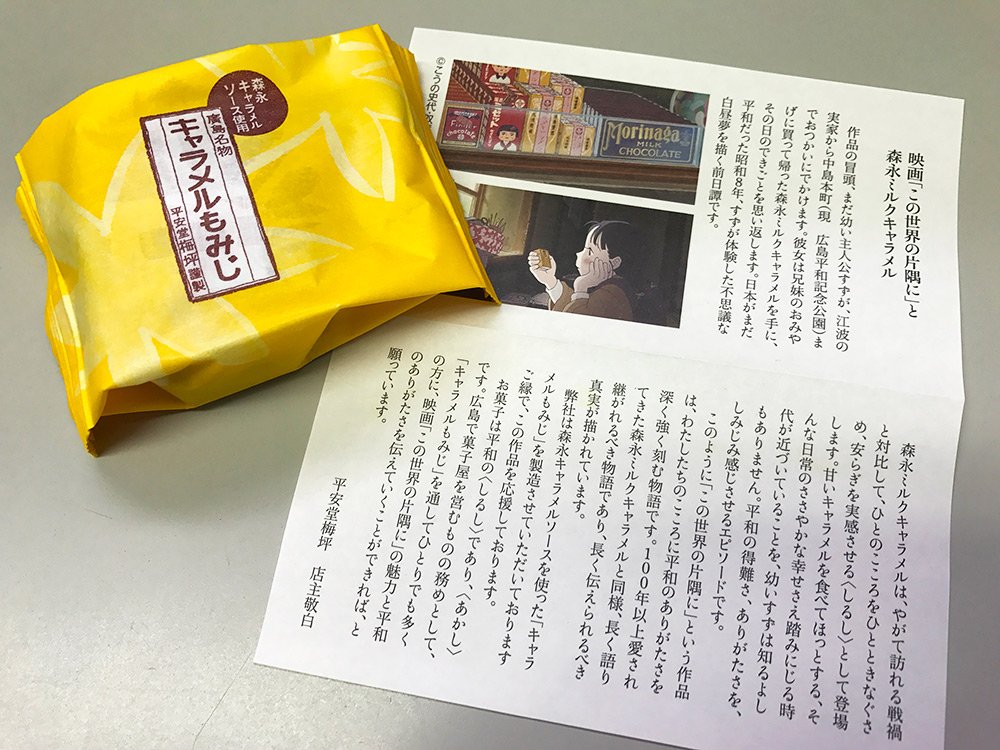 森永
キャラメル
ソース使用
廣島名物
キャラメルもみじ
平安堂梅坪謹製
©こうの史代
Morinaga
MILK
CHOCOLATE
chocolate
映画「この世界の片隅に」と
森永ミルクキャラメル
作品の冒頭、まだ幼い主人公すずが、江波の
実家から中島本町(現　広島平和記念公園)ま
でおつかいにでかけます。彼女は兄妹のおみや
げに買って帰った森永ミルクキャラメルを手に、
その日のできごとを思い返します。日本がまだ
平和だった昭和8年、すずが体験した不思議な
白昼夢を描く前日譚です。
森永ミルクキャラメルは、やがて訪れる戦禍
と対比して、ひとのこころをひとときなぐさ
め、安らぎを実感させる〈しるし〉として登場
します。甘いキャラメルを食べてほっとする、そ
んな日常のささやかな幸せさえ踏みにじる時
代が近づいていることを、幼いすずは知るよし
もありません。平和の得難さ、ありがたさを、
しみじみ感じさせるエピソードです。
このように「この世界の片隅に」という作品
は、わたしたちのこころに平和のありがたさを
深く強く刻む物語です。100年以上愛され
てきた森永ミルクキャラメルと同様、長く語り
継がれるべき物語であり、長く伝えられるべき
真実が描かれています。
弊社は森永キャラメルソースを使った「キャラ
メルもみじ」を製造させていただいております
ご縁で、この作品を応援しております。
お菓子は平和の〈しるし〉であり、〈あかし〉
です。広島で菓子屋を営むものの務めとして、
「キャラメルもみじ」を通してひとりでも多く
の方に、映画「この世界の片隅に」の魅力と平和
のありがたさを伝えていくことができれば、と
願っています。
平安堂梅坪　店主敬白